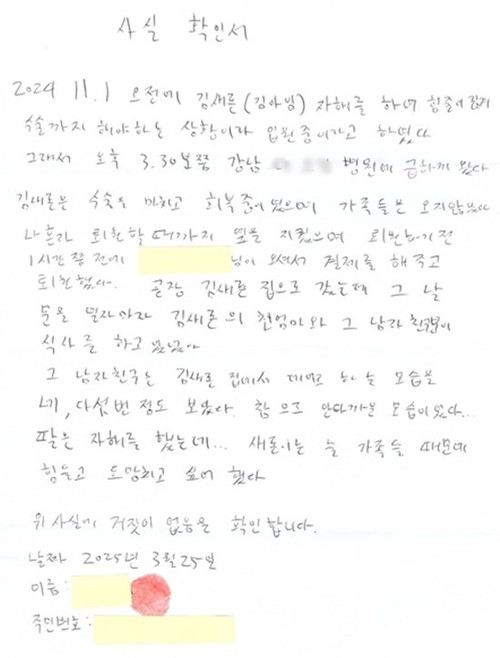 사실 확인서
2024 11.1 오전에 김새론(김아임) 자해를 하여 힘줄이 끊겨
수술까지 해야하는 상황이라 입원중이라고 하였다
그래서 오후 3.30분쯤 강남 병원에 급하게 갔다
김새론은 수술을 마치고 회복중이었으며 가족들은 오지않았다
나혼자 퇴원할때까지 옆을 지켰으며 퇴원하기전
1시간 쯤 전에 님이 오셔서 결제를 해주고
퇴원했다. 곧장 김새론 집으로 갔는데 그 날
문을 열자마자 김새론의 친엄마와 그 남자친구분이
식사를 하고 있었다
그 남자친구는 김새론 집에서 데이트 하는 모습을
네, 다섯번 정도 보았다. 참으로 안타까운 모습이었다...
딸은 자해를 했는데... 새론이는 늘 가족들 때문에
힘들고 도망치고 싶어 했다
위 사실에 거짓이 없음을 확인합니다.
날짜 2025년 3월 25일
이름:
주민번호: